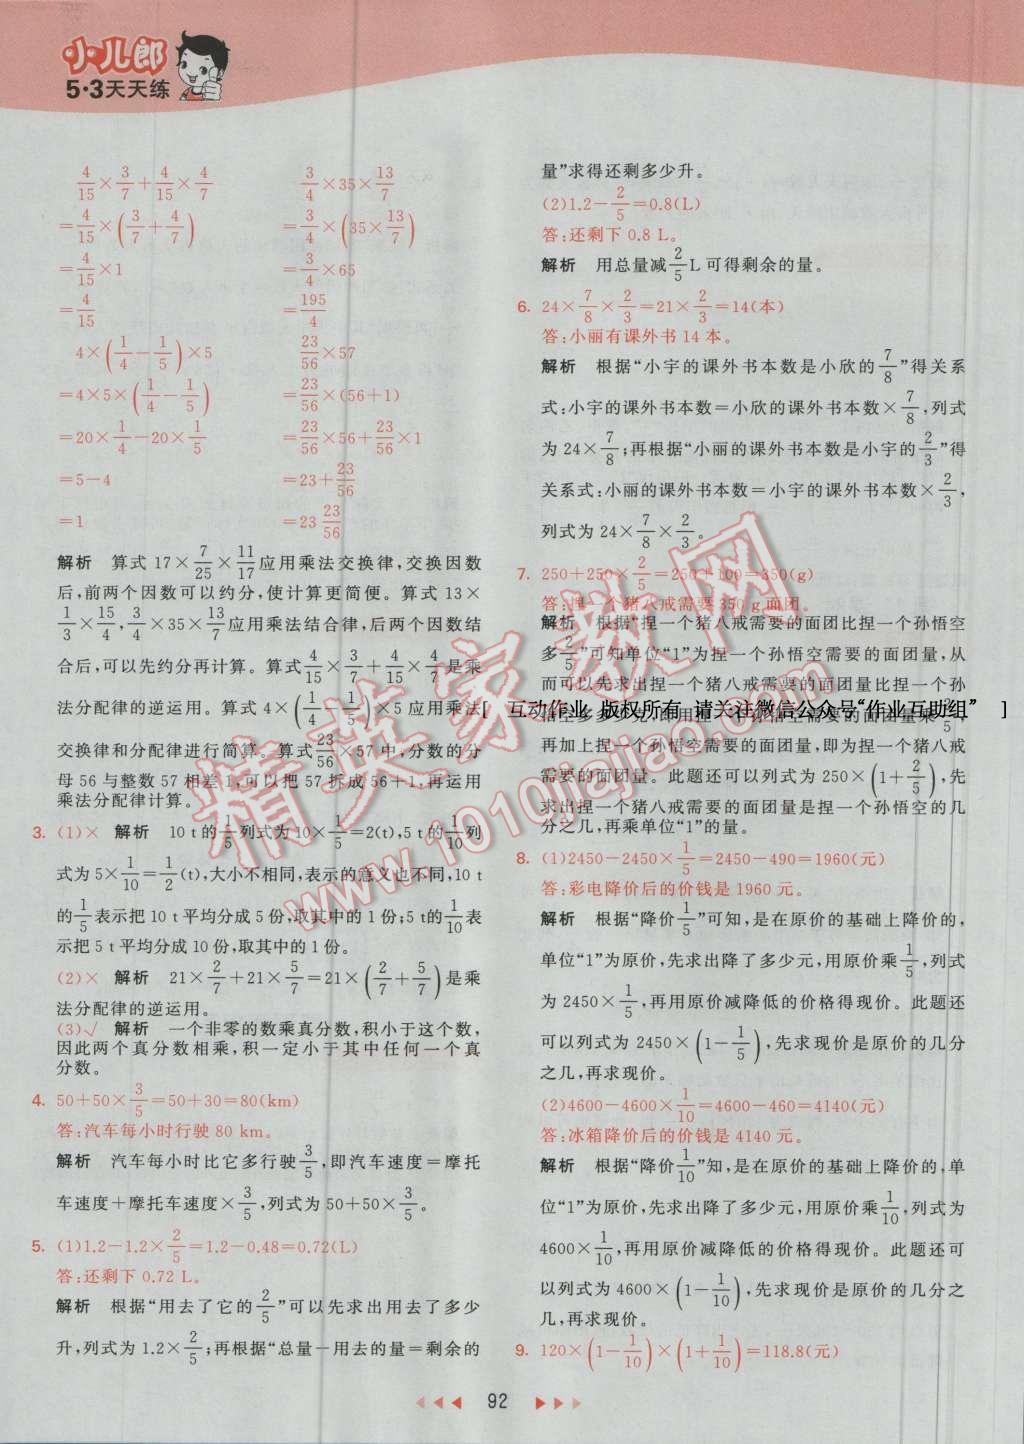 小儿郎
5·3天天练
4/15×3/7+4/15×4/7
=4/15×(3/7+4/7)
=4/15×1
=4/15
4×(1/4-1/5)×5
=4×5×(1/4-1/5)
=20×1/4-20×1/5
=5-4
=1
3/4×35×13/7
=3/4×(35×13/7)
=3/4×65
=195/4
23/56×57
=23/56×(56+1)
=23/56×56+23/56×1
=23+23/56
=23 23/56
解析 算式17×7/25×11/17应用乘法交换律,交换因数
后,前两个因数可以约分,使计算更简便。算式13×
1/3×15/4,3/4×35×13/7应用乘法结合律,后两个因数结
合后,可以先约分再计算。算式4/15×3/7+4/15×4/7是乘
法分配律的逆运用。算式4×(1/4-1/5)×5应用乘法
交换律和分配律进行简算。算式23/56×57中,分数的分
母56与整数57相差1,可以把57拆成56+1,再运用
乘法分配律计算。
3. (1)× 解析 10 t的1/5列式为10×1/5=2(t),5 t的1/10列
式为5×1/10=1/2(t),大小不相同,表示的意义也不同,10 t
的1/5表示把10 t平均分成5份,取其中的1份;5 t的1/10表
示把5 t平均分成10份,取其中的1份。
(2)× 解析 21×2/7+21×5/7=21×(2/7+5/7)是乘
法分配律的逆运用。
(3)√ 解析 一个非零的数乘真分数,积小于这个数,
因此两个真分数相乘,积一定小于其中任何一个真
分数。
4. 50+50×3/5=50+30=80(km)
答:汽车每小时行驶80 km。
解析 汽车每小时比它多行驶3/5,即汽车速度=摩托
车速度+摩托车速度×3/5,列式为50+50×3/5。
5. (1)1.2-1.2×2/5=1.2-0.48=0.72(L)
答:还剩下0.72 L。
解析 根据“用去了它的2/5”可以先求出用去了多少
升,列式为1.2×2/5;再根据“总量-用去的量=剩余的
量”求得还剩多少升。
(2)1.2-2/5=0.8(L)
答:还剩下0.8 L。
解析 用总量减2/5L可得剩余的量。
6. 24×7/8×2/3=21×2/3=14(本)
答:小丽有课外书14本。
解析 根据“小宇的课外书本数是小欣的7/8”得关系
式:小宇的课外书本数=小欣的课外书本数×7/8,列式
为24×7/8;再根据“小丽的课外书本数是小宇的2/3”得
关系式:小丽的课外书本数=小宇的课外书本数×2/3,
列式为24×7/8×2/3。
7. 250+250×2/5=250+100=350(g)
答:捏一个猪八戒需要350 g面团。
解析 根据“捏一个猪八戒需要的面团比捏一个孙悟空
多2/5”可知单位“1”为捏一个孙悟空需要的面团量,从
而可以先求出捏一个猪八戒需要的面团量比捏一个孙
悟空多多少克,用捏一个孙悟空需要的面团量乘2/5,
再加上捏一个孙悟空需要的面团量,即为捏一个猪八戒
需要的面团量。此题还可以列式为250×(1+2/5),先
求出捏一个猪八戒需要的面团量是捏一个孙悟空的几
分之几,再乘单位“1”的量。
8. (1)2450-2450×1/5=2450-490=1960(元)
答:彩电降价后的价钱是1960元。
解析 根据“降价1/5”可知,是在原价的基础上降价的,
单位“1”为原价,先求出降了多少元,用原价乘1/5,列式
为2450×1/5,再用原价减降低的价格得现价。此题还
可以列式为2450×(1-1/5),先求现价是原价的几分
之几,再求现价。
(2)4600-4600×1/10=4600-460=4140(元)
答:冰箱降价后的价钱是4140元。
解析 根据“降价1/10”知,是在原价的基础上降价的,单
位“1”为原价,先求出降了多少元,用原价乘1/10,列式为
4600×1/10,再用原价减降低的价格得现价。此题还可
以列式为4600×(1-1/10),先求现价是原价的几分之
几,再求现价。
9. 120×(1-1/10)×(1+1/10)=118.8(元)
92
精英家教网
www.1010jiajiao.com
[ 互动作业 版权所有 请关注微信公众号“作业互助组” ]